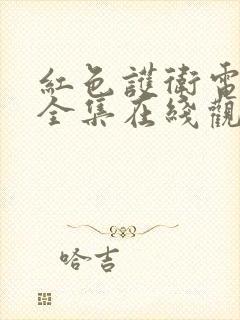 紅色護衛電
全集在綫觀
哈吉